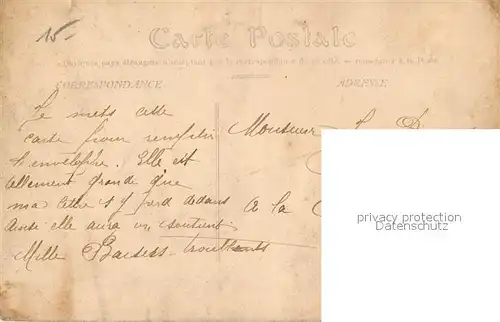 15-
Carte Postale
CORRESPONDANCE
ADRESSE
Je mets cette
carte pour remplir
l'enveloppe. Elle est
tellement grande que
ma lettre s'y perd dedans
Ainsi elle aura un soutient
Mille Baisers
Monsieur
A la
privacy protection
Datenschutz